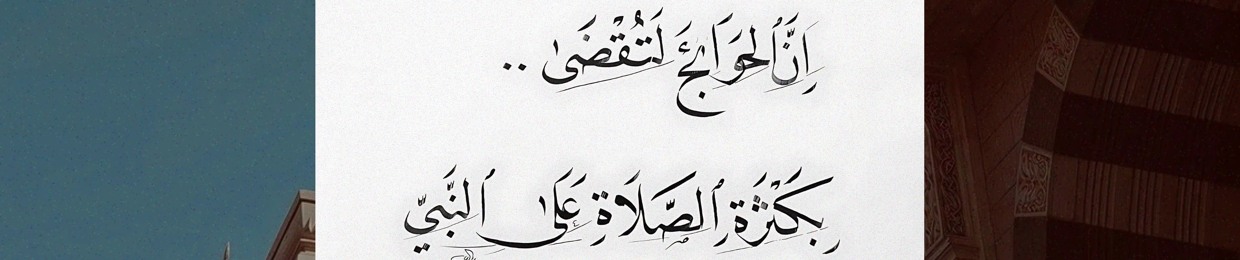 اِنَّ ٱلحَوَائِجَ لَتُقْضَىٰ ..
بِكَثْرَةِ ٱلصَّلَاةِ عَلَى ٱلنَّبِيّ